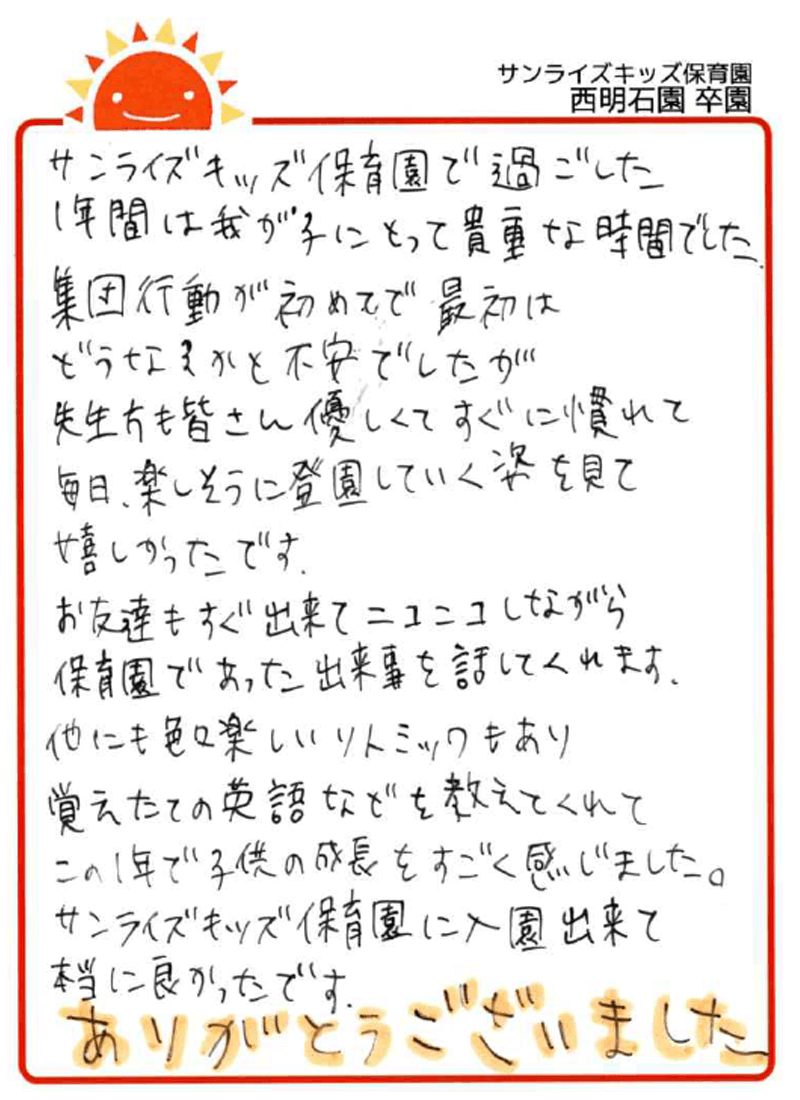 サンライズキッズ保育園
西明石園 卒園
サンライズキッズ保育園で過ごした
1年間は我が子にとって貴重な時間でした.
集団行動が初めてで最初は
どうなるかと不安でしたが
先生方も皆さん優しくてすぐに慣れて
毎日、楽しそうに登園していく姿を見て
嬉しかったです.
お友達もすぐ出来てニコニコしながら
保育園であった出来事を話してくれます.
他にも色々楽しいリトミックもあり
覚えたての英語などを教えてくれて
この1年で子供の成長をすごく感じました。
サンライズキッズ保育園に入園出来て
本当に良かったです.
ありがとうございました